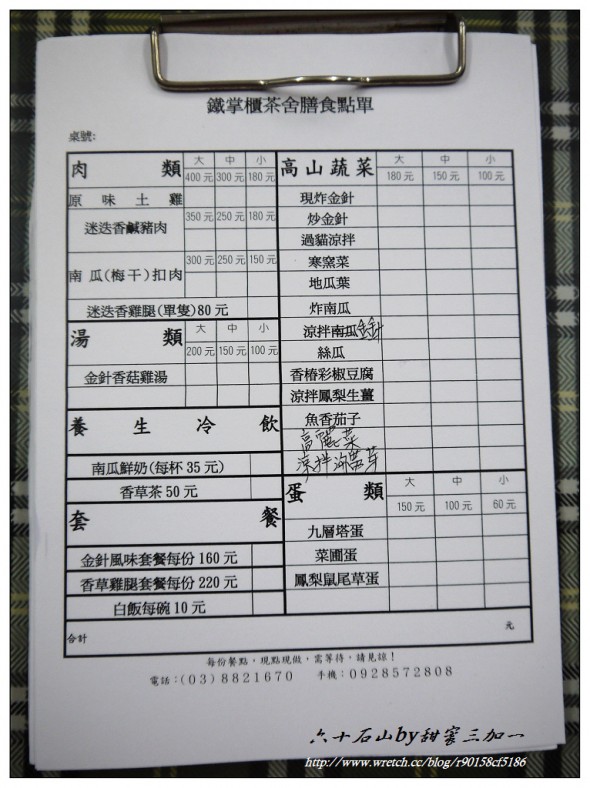 鐵掌櫃茶舍膳食點單
桌號:
肉類 大 中 小
400元 300元 180元
原味土雞
迷迭香鹹豬肉 350元 250元 180元
南瓜(梅干)扣肉 300元 250元 150元
迷迭香雞腿(單隻)80元
湯類 大 中 小
200元 150元 100元
金針香菇雞湯
養生冷飲
南瓜鮮奶(每杯35元)
香草茶50元
套餐
金針風味套餐每份160元
香草雞腿套餐每份220元
白飯每碗10元
高山蔬菜 大 中 小
180元 150元 100元
現炸金針
炒金針
過貓涼拌
寒窯菜
地瓜葉
炸南瓜
涼拌南瓜金針
絲瓜
香椿彩椒豆腐
涼拌鳳梨生薑
魚香茄子
高麗菜
涼拌海茴芽
蛋類 大 中 小
150元 100元 60元
九層塔蛋
菜圃蛋
鳳梨鼠尾草蛋
合計 元
每份餐點，現點現做，需等待，請見諒！
電話：(03)8821670 手機：0928572808
六十石山by甜蜜三加一
http://www.wretch.cc/blog/r90158cf5186